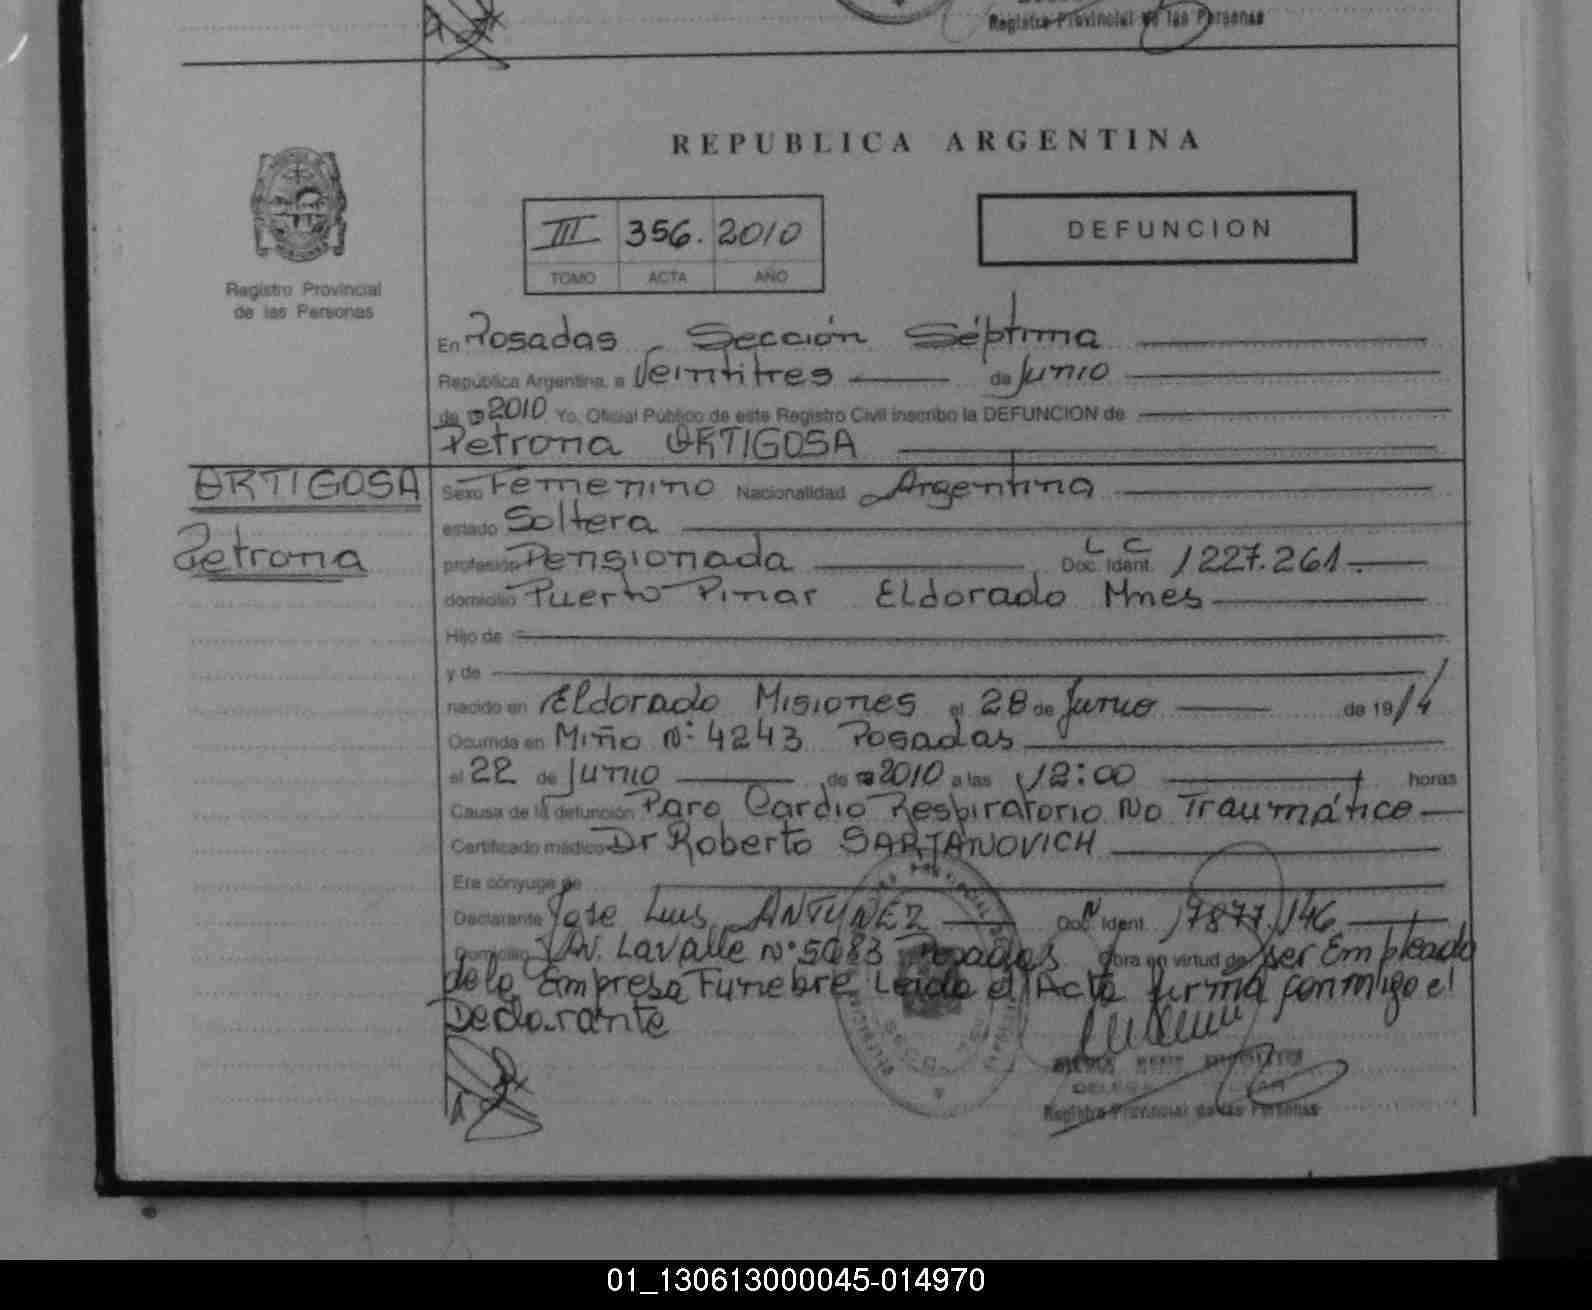 Registro Provincial de las Personas
REPUBLICA ARGENTINA
III 356. 2010
TOMO ACTA AÑO
DEFUNCION
Registro Provincial
de las Personas
En Posadas Sección Séptima
República Argentina, a Veintitres de Junio
de 2010 Yo, Oficial Público de este Registro Civil inscribo la DEFUNCION de
Petrona ORTIGOSA
ORTIGOSA
Petrona
Sexo Femenino Nacionalidad Argentina
estado Soltera
profesión Pensionada L C Doc. Ident. 1227.261.
domicilio Puerto Pinar Eldorado Mnes
Hijo de
y de
nacido en Eldorado Misiones el 28 de Junio de 19 14
Ocurrida en Miño Nº 4243 Posadas
el 22 de Junio de 2010 a las 12:00 horas
Causa de la defunción Paro Cardio Respiratorio No Traumático
Certificado médico Dr Roberto SARTANOVICH
Era cónyuge de
Declarante Jose Luis ANTUNEZ Doc. Ident. 17877.146
Domicilio Av. Lavalle nº 5083 Posadas Obra en virtud de ser Empleado
de la Empresa Funebre Leida el Acta firma conmigo el
Declarante
Registro Provincial de las Personas
01_130613000045-014970